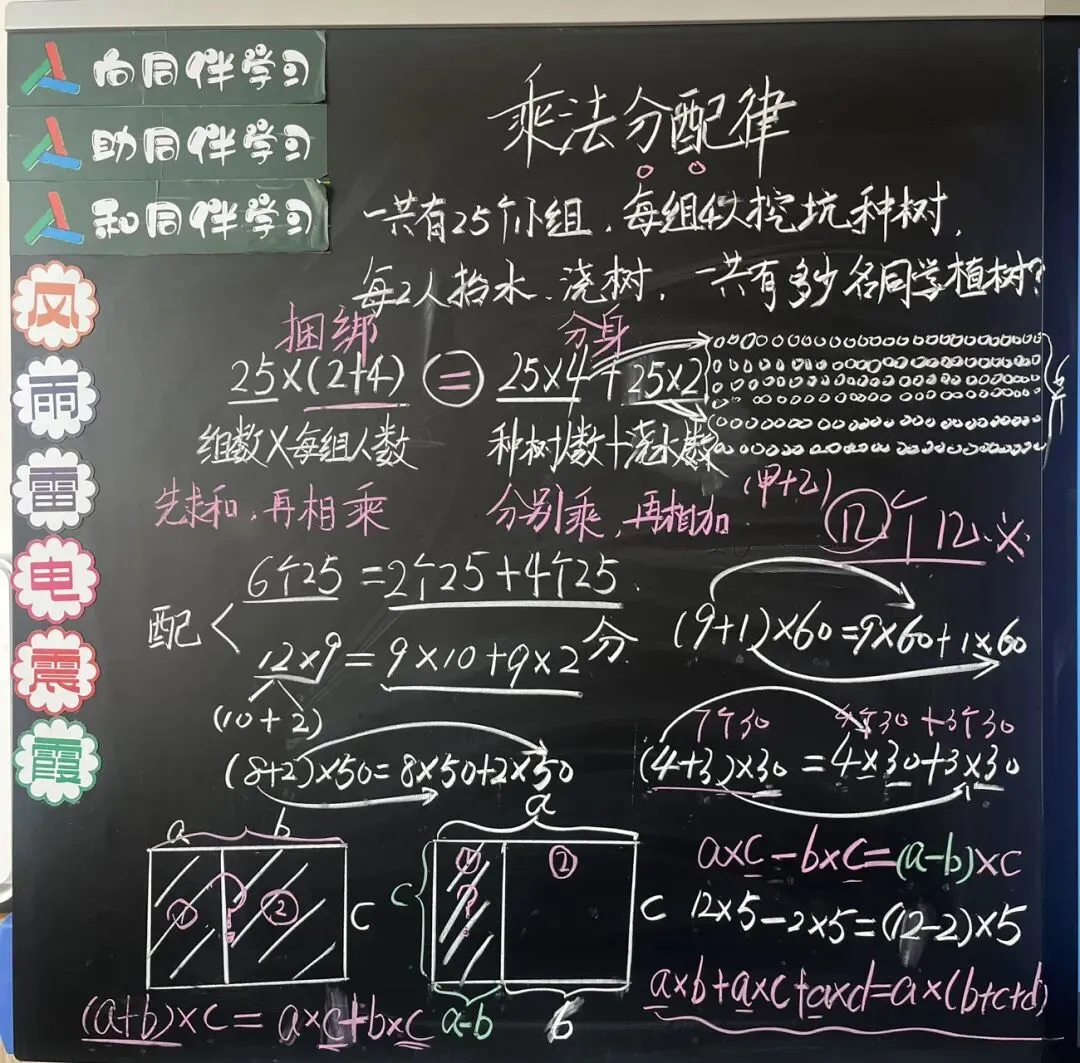 向同伴学习
助同伴学习
和同伴学习
风
雨
雷
电
震
霞
乘法分配律
一共有25个小组,每组4人挖坑种树,
每2人抬水、浇树,一共有多少名同学植树?
捆绑 分身
25×(2+4) = 25×4+25×2
组数×每组人数 种树人数+浇水人数
先求和,再相乘 分别乘,再相加
(甲+乙)
12个12.义
6个25=2个25+4个25
配 分
12×9=9×10+9×2
(10+2)
(9+1)×60=9×60+1×60
7个30 4个30+3个30
(8+2)×50=8×50+2×50
(4+3)×30=4×30+3×30
a b
① ? ②
c
(a+b)×c=a×c+b×c
a
c ① ? ② c
a-b b
a×c-b×c=(a-b)×c
12×5-2×5=(12-2)×5
a×b+a×c+a×d=a×(b+c+d)